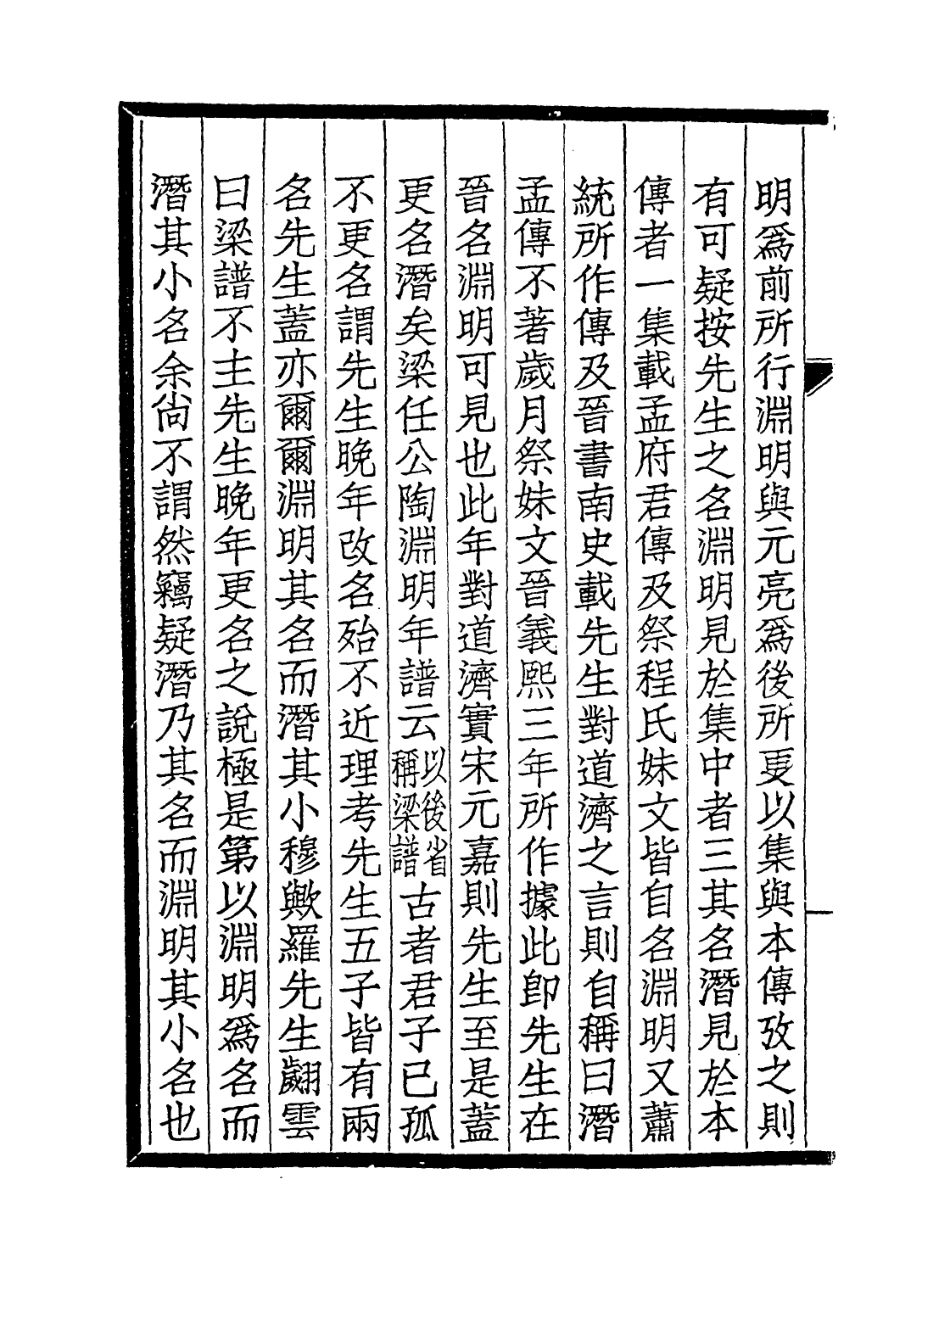 明爲前所行淵明與元亮爲後所更以集與本傳攷之則
有可疑按先生之名淵明見於集中者三其名潛見於本
傳者一集載孟府君傳及祭程氏妹文皆自名淵明又蕭
統所作傳及晉書南史載先生對道濟之言則自稱曰潛
孟傳不著歲月祭妹文晉義熙三年所作據此卽先生在
晉名淵明可見也此年對道濟實宋元嘉則先生至是蓋
更名潛矣梁任公陶淵明年譜云以後省稱梁譜古者君子已孤
不更名謂先生晚年改名殆不近理考先生五子皆有兩
名先生蓋亦爾爾淵明其名而潛其小穆歟羅先生翽雲
曰梁譜不主先生晚年更名之說極是第以淵明爲名而
潛其小名余尙不謂然竊疑潛乃其名而淵明其小名也